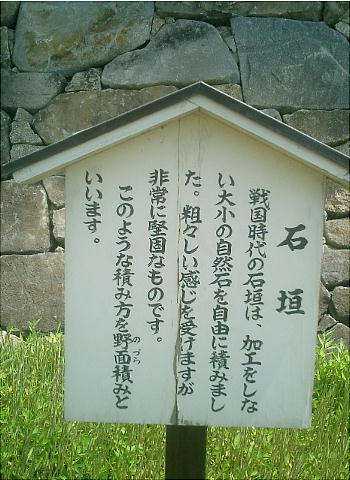 石垣
戦国時代の石垣は、加工をしな
い大小の自然石を自由に積みまし
た。粗々しい感じを受けますが
非常に堅固なものです。
このような積み方を野面積みと
のづら
いいます。